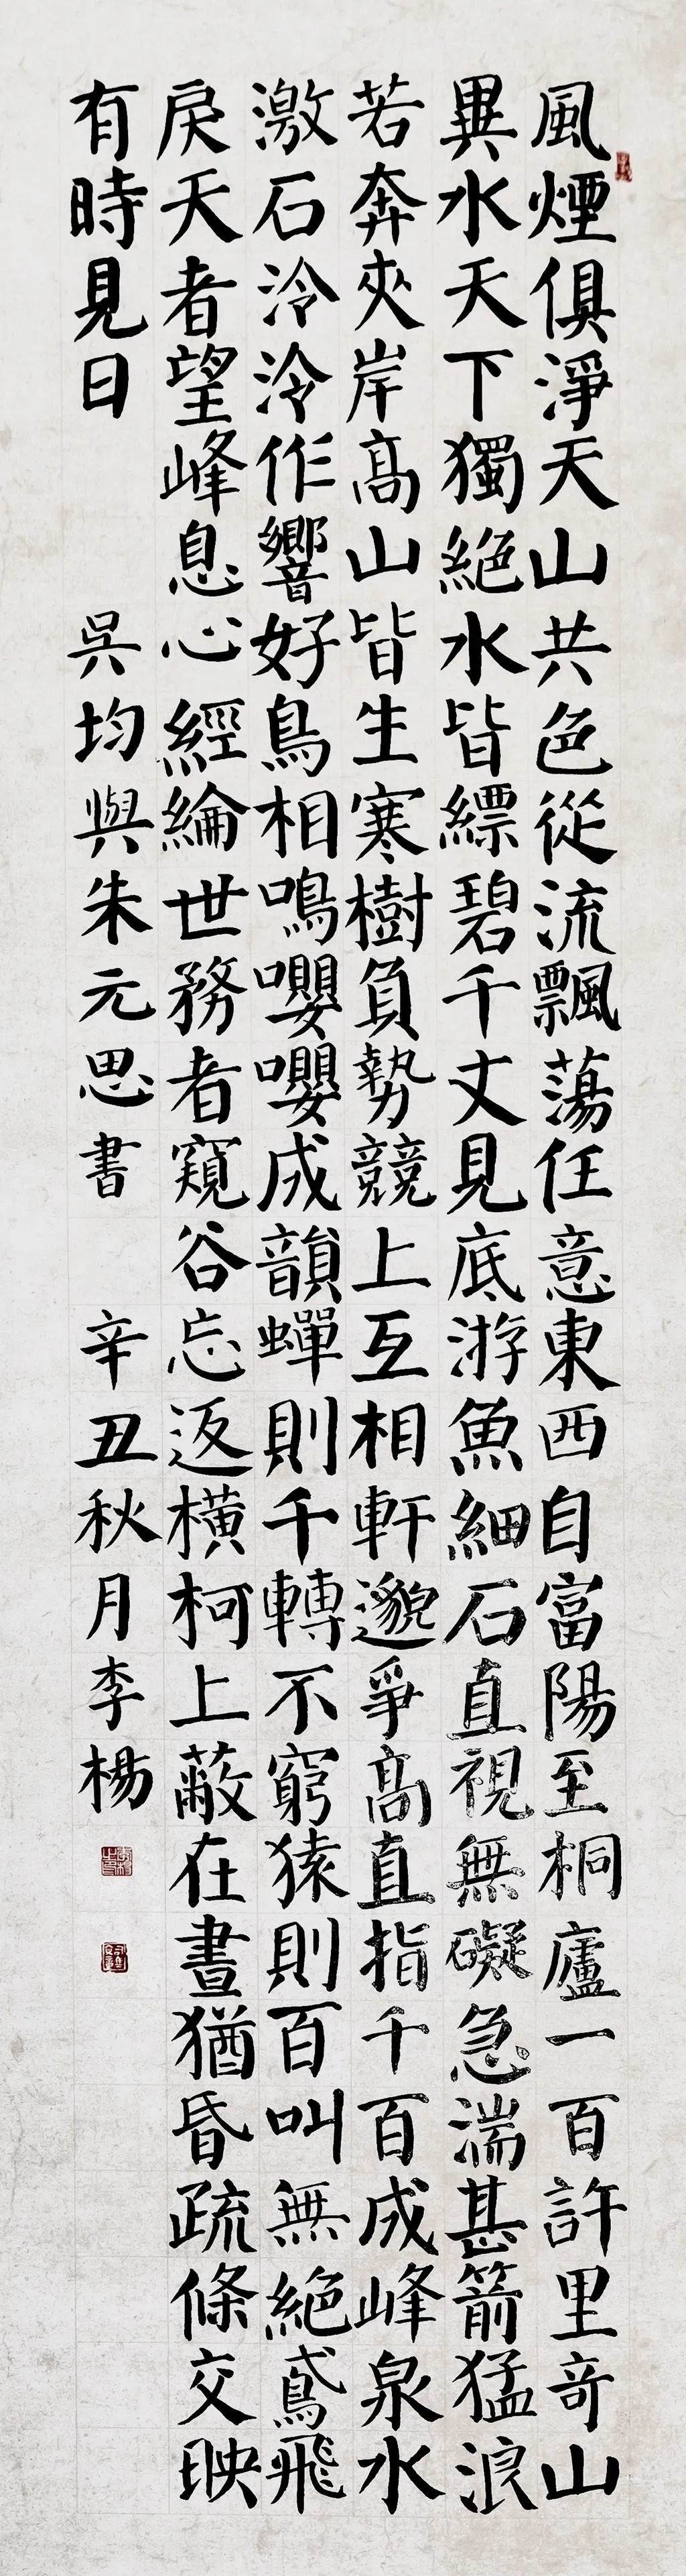 風煙俱淨天山共色從流飄蕩任意東西自富陽至桐廬一百許里奇山
異水天下獨絕水皆縹碧千丈見底游魚細石直視無礙急湍甚箭猛浪
若奔夾岸高山皆生寒樹負勢競上互相軒邈爭高直指千百成峰泉水
激石泠泠作響好鳥相鳴嚶嚶成韻蟬則千轉不窮猿則百叫無絕鳶飛
戾天者望峰息心經綸世務者窺谷忘返橫柯上蔽在晝猶昏疏條交映
有時見日 吳均與朱元思書 辛丑秋月李楊